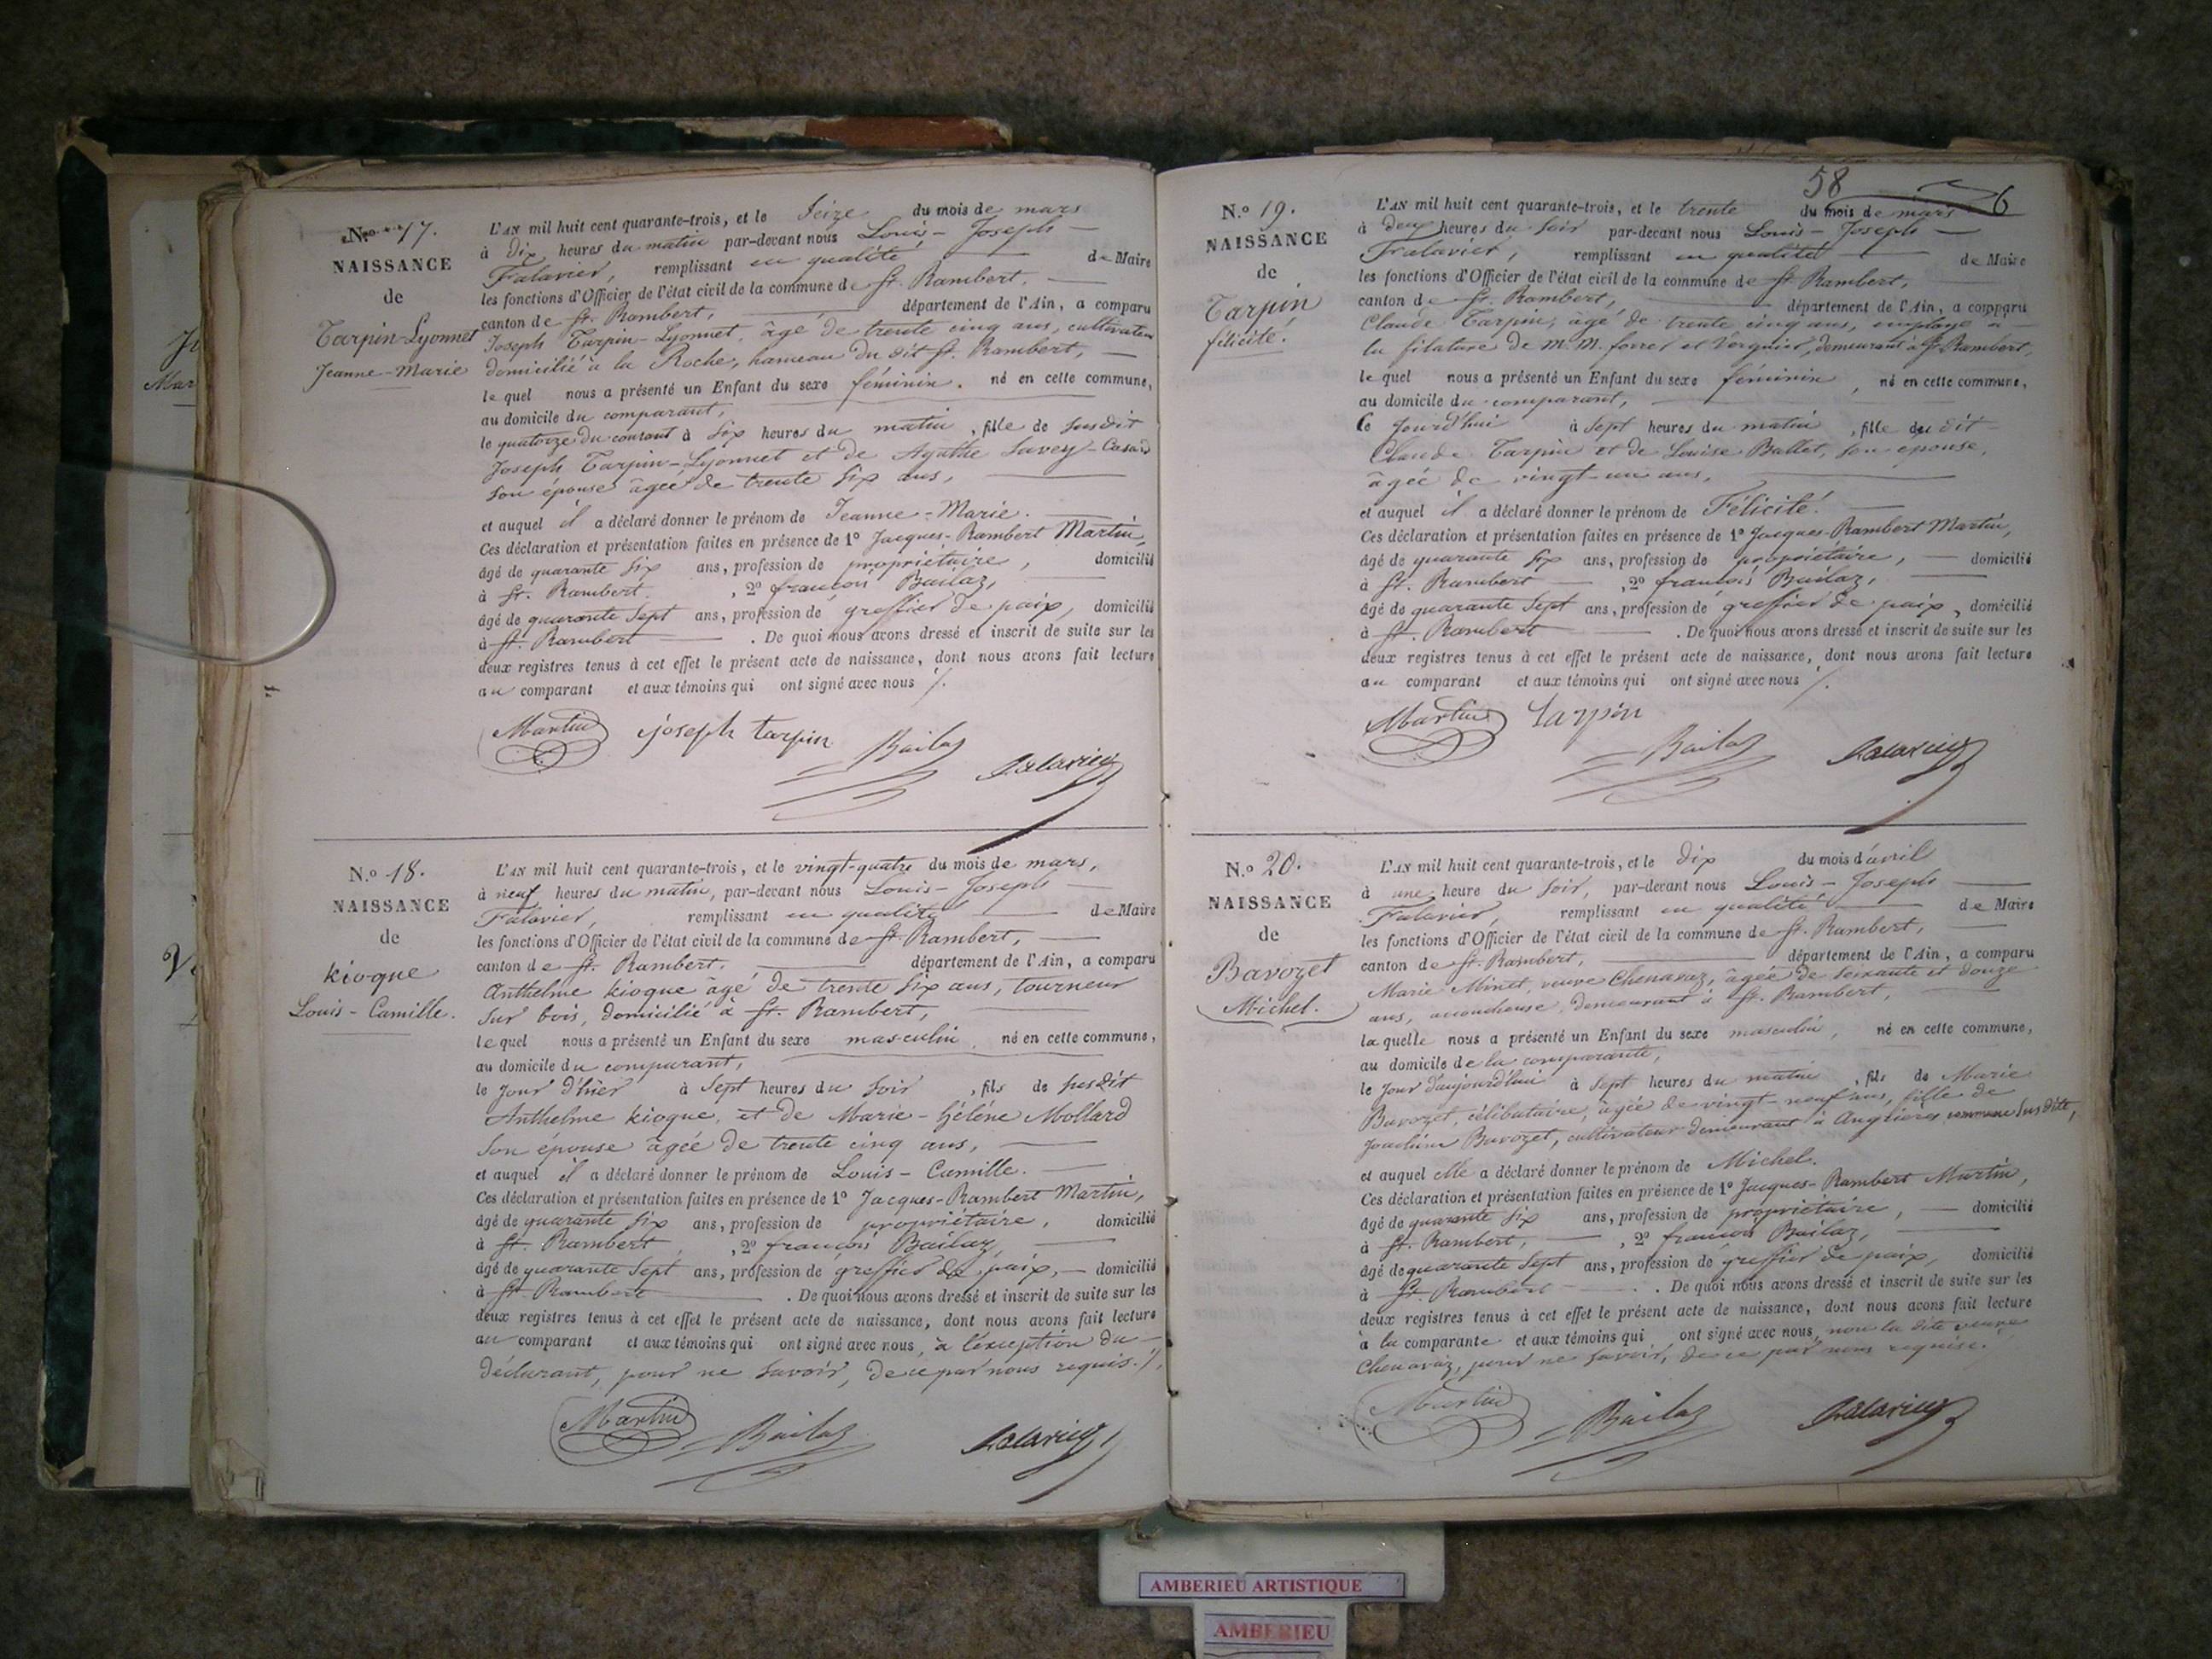 N.º 17.
NAISSANCE
de
Tarpin-Lyonnet
Jeanne-Marie
L'AN mil huit cent quarante-trois, et le Seize du mois de mars
à dix heures du matin par-devant nous Louis-Joseph
Falavier, remplissant en qualité de Maire
les fonctions d'Officier de l'état civil de la commune de St. Rambert,
canton de St. Rambert, département de l'Ain, a comparu
Joseph Tarpin-Lyonnet, âgé de trente cinq ans, cultivateur
domicilié à la Roche, hameau du dit St. Rambert,
le quel nous a présenté un Enfant du sexe féminin. né en cette commune,
au domicile du comparant,
le quatorze du courant à six heures du matin, fille de susdit
Joseph Tarpin-Lyonnet et de Agathe Savey-Casard
son épouse âgée de trente six ans,
et auquel il a déclaré donner le prénom de Jeanne-Marie.
Ces déclaration et présentation faites en présence de 1º Jacques-Rambert Martin,
âgé de quarante six ans, profession de propriétaire, domicilié
à St. Rambert. , 2º françois Bailaz,
âgé de quarante sept ans, profession de greffier de paix, domicilié
à St. Rambert . De quoi nous avons dressé et inscrit de suite sur les
deux registres tenus à cet effet le présent acte de naissance, dont nous avons fait lecture
au comparant et aux témoins qui ont signé avec nous /.
Martin joseph tarpin Bailaz Falavier
N.º 18.
NAISSANCE
de
kioque
Louis-Camille.
L'AN mil huit cent quarante-trois, et le vingt-quatre du mois de mars,
à neuf heures du matin, par-devant nous Louis-Joseph
Falavier, remplissant en qualité de Maire
les fonctions d'Officier de l'état civil de la commune de St. Rambert,
canton de St. Rambert. département de l'Ain, a comparu
Anthelme kioque âgé de trente six ans, tourneur
sur bois, domicilié à St. Rambert,
le quel nous a présenté un Enfant du sexe masculin, né en cette commune,
au domicile du comparant,
le jour d'hier à sept heures du soir, fils de susdit
Anthelme kioque, et de Marie-hélène Mollard
son épouse âgée de trente cinq ans,
et auquel il a déclaré donner le prénom de Louis-Camille.
Ces déclaration et présentation faites en présence de 1º Jacques-Rambert Martin,
âgé de quarante six ans, profession de propriétaire, domicilié
à St. Rambert , 2º françois Bailaz,
âgé de quarante sept ans, profession de greffier de paix, domicilié
à St Rambert . De quoi nous avons dressé et inscrit de suite sur les
deux registres tenus à cet effet le présent acte de naissance, dont nous avons fait lecture
au comparant et aux témoins qui ont signé avec nous, à l'exception du
déclarant, pour ne savoir, de ce par nous requis. /.
Martin Bailaz Falavier
58
6
N.º 19.
NAISSANCE
de
Tarpin
félicité.
L'AN mil huit cent quarante-trois, et le trente du mois de mars
à deux heures du soir par-devant nous Louis-Joseph
Falavier, remplissant en qualité de Maire
les fonctions d'Officier de l'état civil de la commune de St. Rambert,
canton de St. Rambert, département de l'Ain, a comparu
Claude Tarpin, âgé de trente cinq ans, employé à
la filature de M.M. forrer et Vergnier, demeurant à St Rambert,
le quel nous a présenté un Enfant du sexe féminin, né en cette commune,
au domicile du comparant,
ce jourd'hui à sept heures du matin, fille du dit
Claude Tarpin et de Louise Ballet, son épouse,
âgée de vingt-un ans,
et auquel il a déclaré donner le prénom de Félicité.
Ces déclaration et présentation faites en présence de 1º Jacques-Rambert Martin,
âgé de quarante six ans, profession de propriétaire, domicilié
à St. Rambert , 2º françois Bailaz,
âgé de quarante sept ans, profession de greffier de paix, domicilié
à St. Rambert . De quoi nous avons dressé et inscrit de suite sur les
deux registres tenus à cet effet le présent acte de naissance, dont nous avons fait lecture
au comparant et aux témoins qui ont signé avec nous /.
Martin tarpin Bailaz Falavier
N.º 20.
NAISSANCE
de
Bavozet
Michel.
L'AN mil huit cent quarante-trois, et le dix du mois d'avril
à une heure du soir, par-devant nous Louis-Joseph
Falavier, remplissant en qualité de Maire
les fonctions d'Officier de l'état civil de la commune de St. Rambert,
canton de St. Rambert, département de l'Ain, a comparu
Marie Minet, veuve Chenavaz, âgée de soixante et douze
ans, accoucheuse, demeurant à St. Rambert,
la quelle nous a présenté un Enfant du sexe masculin, né en cette commune,
au domicile de la comparante,
le jour d'aujourd'hui à sept heures du matin, fils de Marie
Bavozet, célibataire, âgée de vingt-neuf ans, fille de
Joachim Bavozet, cultivateur demeurant à Anglieres commune susdite,
et auquel elle a déclaré donner le prénom de Michel.
Ces déclaration et présentation faites en présence de 1º Jacques-Rambert Martin,
âgé de quarante six ans, profession de propriétaire, domicilié
à St. Rambert, , 2º françois Bailaz,
âgé de quarante sept ans, profession de greffier de paix, domicilié
à St. Rambert . De quoi nous avons dressé et inscrit de suite sur les
deux registres tenus à cet effet le présent acte de naissance, dont nous avons fait lecture
à la comparante et aux témoins qui ont signé avec nous, non la dite veuve
Chenavaz, pour ne savoir, de ce par nous requise.
Martin Bailaz Falavier
AMBERIEU ARTISTIQUE
AMBERIEU